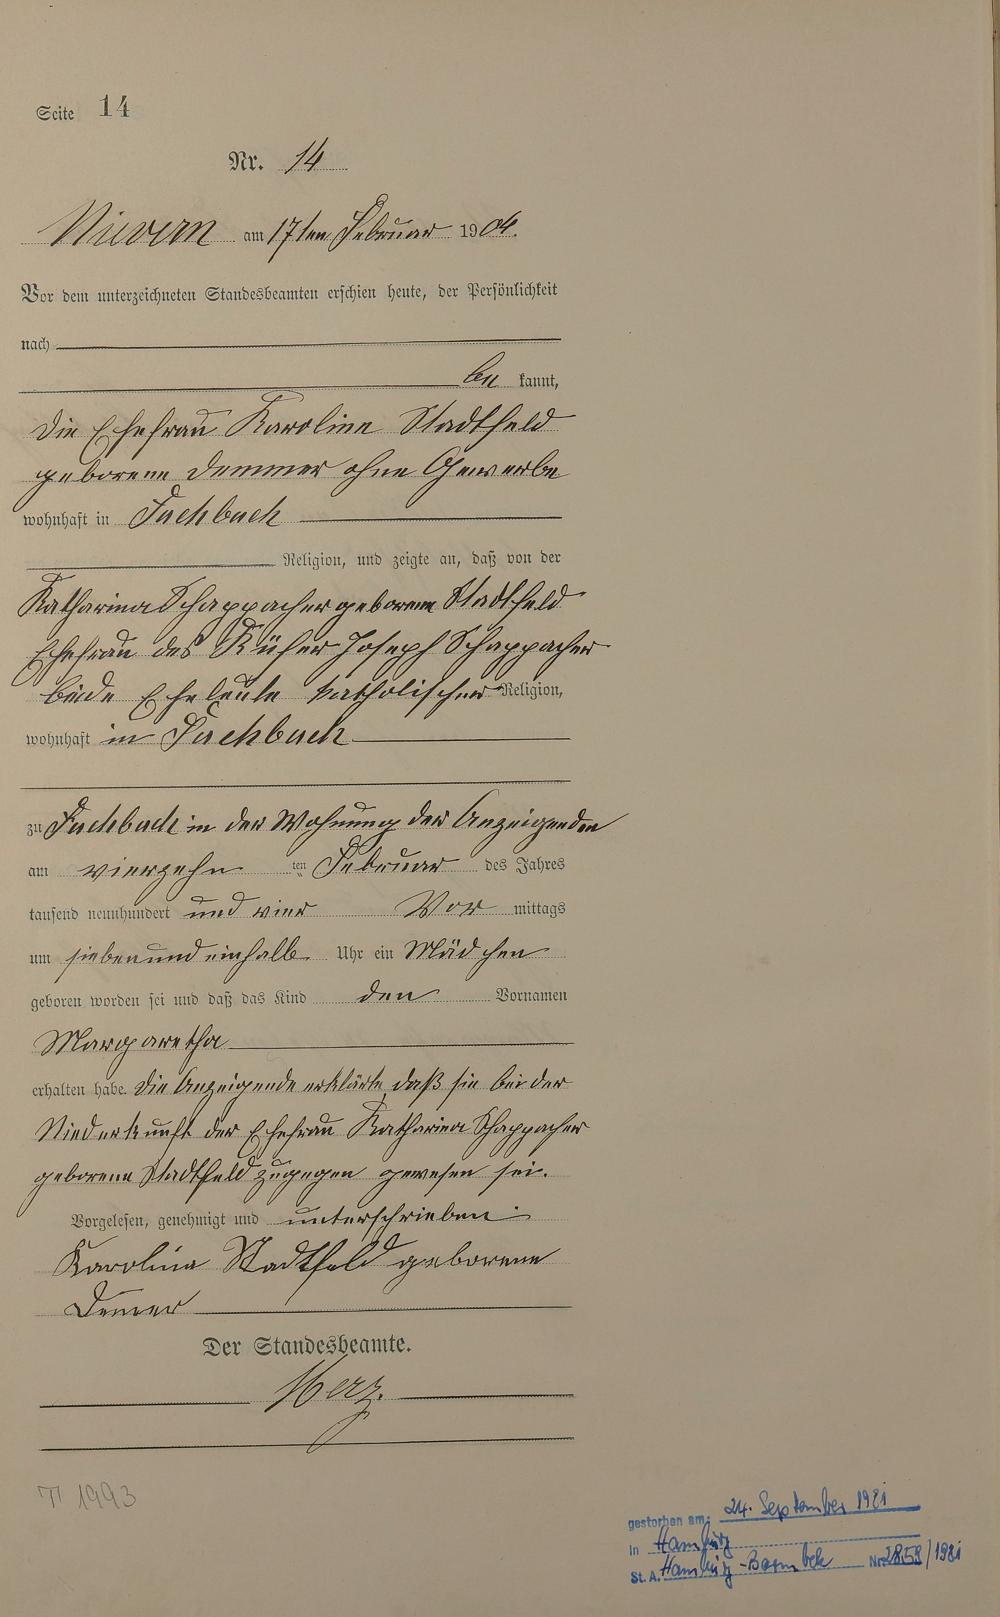 Seite 14
Nr. 14
Nievern am 17ten Februar 1904.
Vor dem unterzeichneten Standesbeamten erschien heute, der Persönlichkeit
nach
be kannt,
die Ehefrau Karoline Stadtfeld
geborene Demmer ohne Gewerbe
wohnhaft in Fachbach
Religion, und zeigte an, daß von der
Katharina Schappacher geborene Stadtfeld
Ehefrau des Küfer Joseph Schappacher
beide Eheleute katholischer Religion,
wohnhaft in Fachbach
zu Fachbach in der Wohnung der Anzeigenden
am vierzehn ten Februar des Jahres
tausend neunhundert und vier Vor mittags
um sieben und einhalb Uhr ein Mädchen
geboren worden sei und daß das Kind den Vornamen
Margaretha
erhalten habe. Die Anzeigende erklärte, daß sie bei der
Niederkunft der Ehefrau Katharina Schappacher
geborene Stadtfeld zugegen gewesen sei.
Vorgelesen, genehmigt und unterschrieben
Karolina Stadtfeld geborene
Demer
Der Standesbeamte.
Merz.
T 1993
gestorben am: 24. September 1981
in Hamburg
St. A. Hamburg-Barmbek Nr. 2858/1981